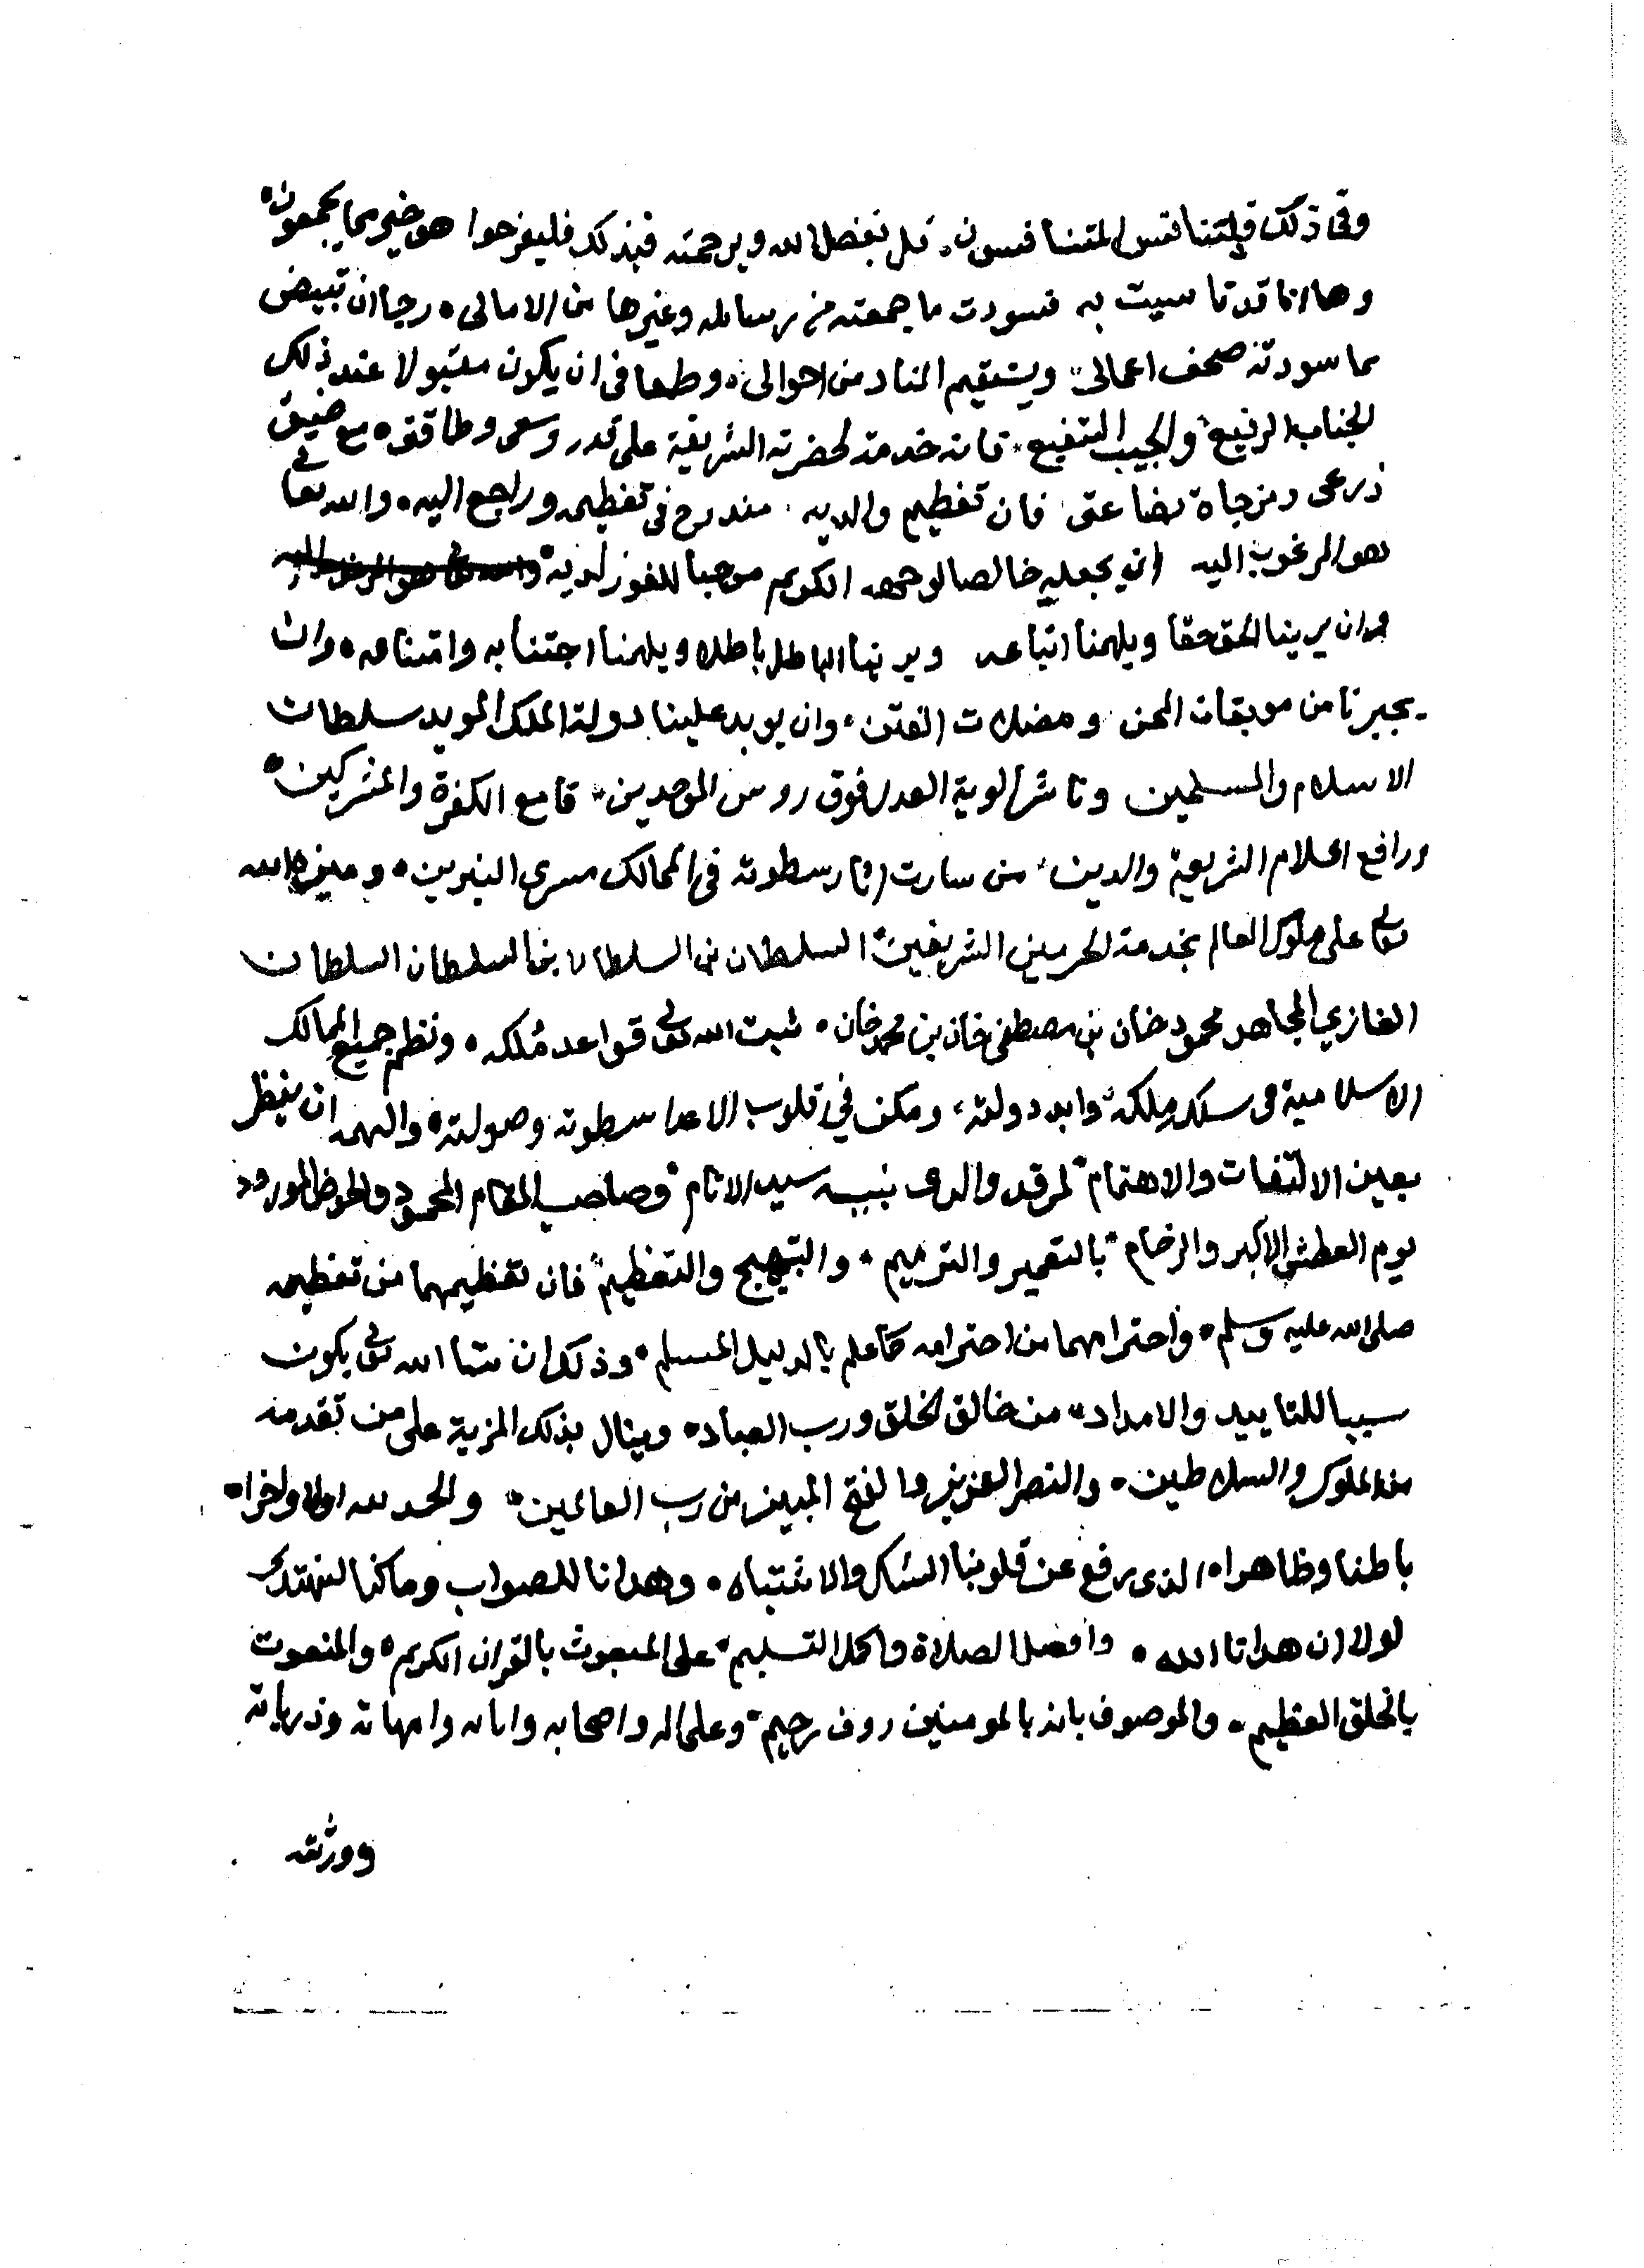 وفى ذلك فليتنافس المتنافسون. قل بفضل الله وبرحمته فبذلك فليفرحوا هو خير مما يجمعون
وها انا قد تاسيت به فسودت ما جمعته من رسائله وغيرها من الامالى رجا ان تبيض
بما سودته صحف اعمالى ويستقيم المناد من احوالى وطمعا فى ان يكون مقبولا عند ذلك
الجناب الرفيع والحبيب الشفيع فانه خدمة لحضرته الشريفة على قدر وسعى وطاقتى مع ضيق
ذرعى ومزجاة بضاعتى فان تعظيم والديه مندرج فى تعظيمه وراجع اليه والله تعالى
هو المرغوب اليه ان يجعله خالصا لوجهه الكريم موجبا للفوز لديه والله تعالى هو المرغوب اليه
وان يرينا الحق حقا ويلهمنا اتباعه ويرينا الباطل باطلا ويلهمنا اجتنابه وان
يجيرنا من موبقات المحن ومضلات الفتن وان يويد علينا دولة الملك المويد سلطان
الاسلام والمسلمين وناشر الوية العدل فوق روس الموحدين قامع الكفرة والمشركين
ورافع اعلام الشريعة والدين من سارت اثار سطوته فى الممالك مسرى النيرين وميزه الله
تعالى على ملوك العالم بخدمة الحرمين الشريفين السلطان بن السلطان بن السلطان السلطان
الغازي المجاهد محمود خان بن مصطفى خان بن محمد خان ثبت الله تعالى قواعد مُلكه ونظم جميع الممالك
الاسلامية فى سلك مِلكه وابد دولته ومكن في قلوب الاعدا سطوته وصولته والهمه ان ينظر
بعين الالتفات والاهتمام لمرقد والدى نبيه سيد الانام وصاحب المقام المحمود والحوض المورود
يوم العطش الاكبر والزحام بالتعمير والترميم والتبهيج والتعظيم فان تعظيمهما من تعظيمه
صلى الله عليه وسلم واحترامهما من احترامه كما علم بالدليل المسلم وذلك ان شا الله تعالى يكون
سببا للتاييد والامداد من خالق الخلق ورب العباد وينال بذلك المزية على من تقدمه
من الملوك والسلاطين والنصر العزيز والفتح المبين من رب العالمين والحمد لله اولا واخرا
باطنا وظاهرا الذى رفع عن قلوبنا الشك والاشتباه وهدانا للصواب وما كنا لنهتدى
لولا ان هدانا الله وافضل الصلاة واكمل التسليم على المبعوث بالقران الكريم والمنعوت
بالخلق العظيم والموصوف بانه بالمومنين روف رحيم وعلى اله واصحابه وابائه وامهاته وذرياته
وورثته